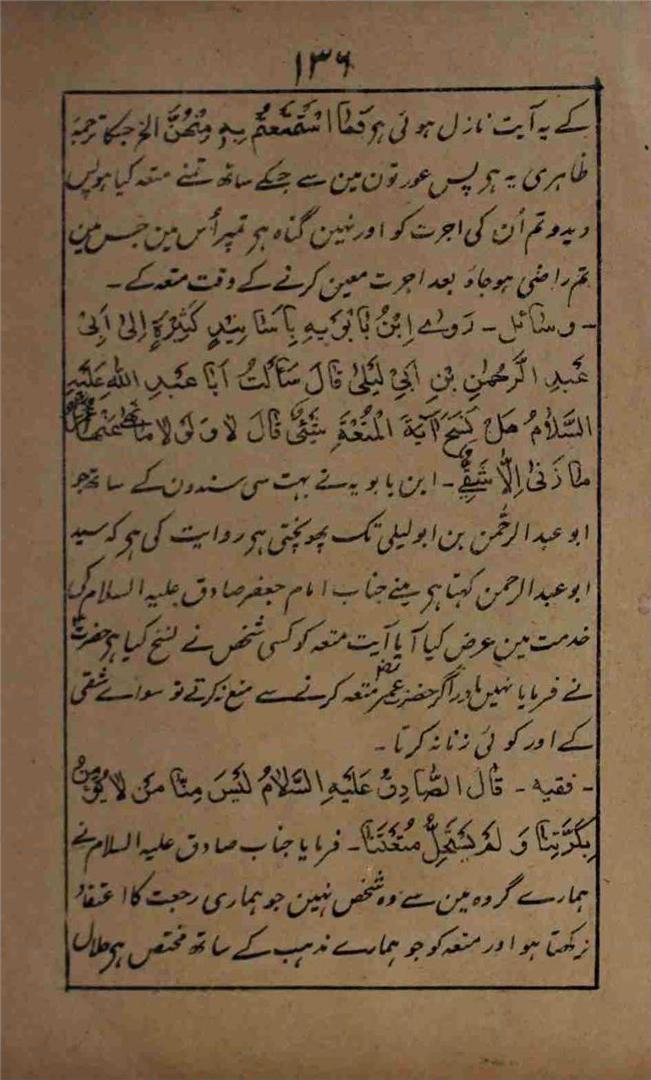 ۱۳۶
کے یہ آیت نازل ہوئی ہر فَمَا اسْتَمْتَعْتُمْ بِہٖ مِنْھُنَّ الخ جسکا ترجمۂ
ظاہری یہ ہر پس عورتون مین سے جسکے ساتھ تمنے متعہ کیا ہو پس
دیدو تم اُن کی اجرت کو اور نہین گناہ ہر تمپر اُس مین جس مین
تم راضی ہو جاؤ بعد اجرت معین کرنے کے وقت متعہ کے ۔
۔ وسائل ۔ رَوٰے اِبْنُ بَابُوَیہِ بِاَسَانِیدٍ کَثِیْرَۃٍ اِلیٰ اَبِیْ
عَبدِ الرَّحْمٰنِ بْنِ اَبِیْ لَیْلیٰ قَالَ سَأَلْتُ اَبَا عَبدِ اللّٰہِ عَلَیْہِ
السَّلَامُ ھَلْ نَسَخَ آیَۃَ الْمُتْعَۃِ شَیْئٌ قَالَ لَا وَلَوْ لَا مَا نَھیٰ عَنْھَا عُمَرُ
مَا زَنیٰ اِلَّا شَقِیٌّ ۔ ابن بابویہ نے بہت سی سندون کے ساتھ جو
ابو عبد الرحمٰن بن ابو لیلی تک پہونچتی ہر روایت کی ہر کہ سید
ابو عبد الرحمن کہتا ہر مینے جناب امام جعفر صادق علیہ السلام کی
خدمت مین عرض کیا آیا آیت متعہ کو کسی شخص نے نسخ کیا ہر حضرت
نے فرمایا نہین اور اگر حضرت عمر متعہ کرنے سے منع نکرتے تو سواے شقی
کے اور کوئی زنا نہ کرتا ۔
۔ فقیہ ۔ قَالَ الصَّادِقُ عَلَیْہِ السَّلَامُ لَیْسَ مِنَّا مَن لَا یُؤْمِنُ
بِکَرَّتِنَا وَ لَمْ یَسْتَحِلَّ مُتْعَتَنَا ۔ فرمایا جناب صادق علیہ السلام نے
ہمارے گروہ مین سے وہ شخص نہین جو ہماری رجعت کا اعتقاد
نرکھتا ہو اور متعہ کو جو ہمارے مذہب کے ساتھ مختص ہر حلال